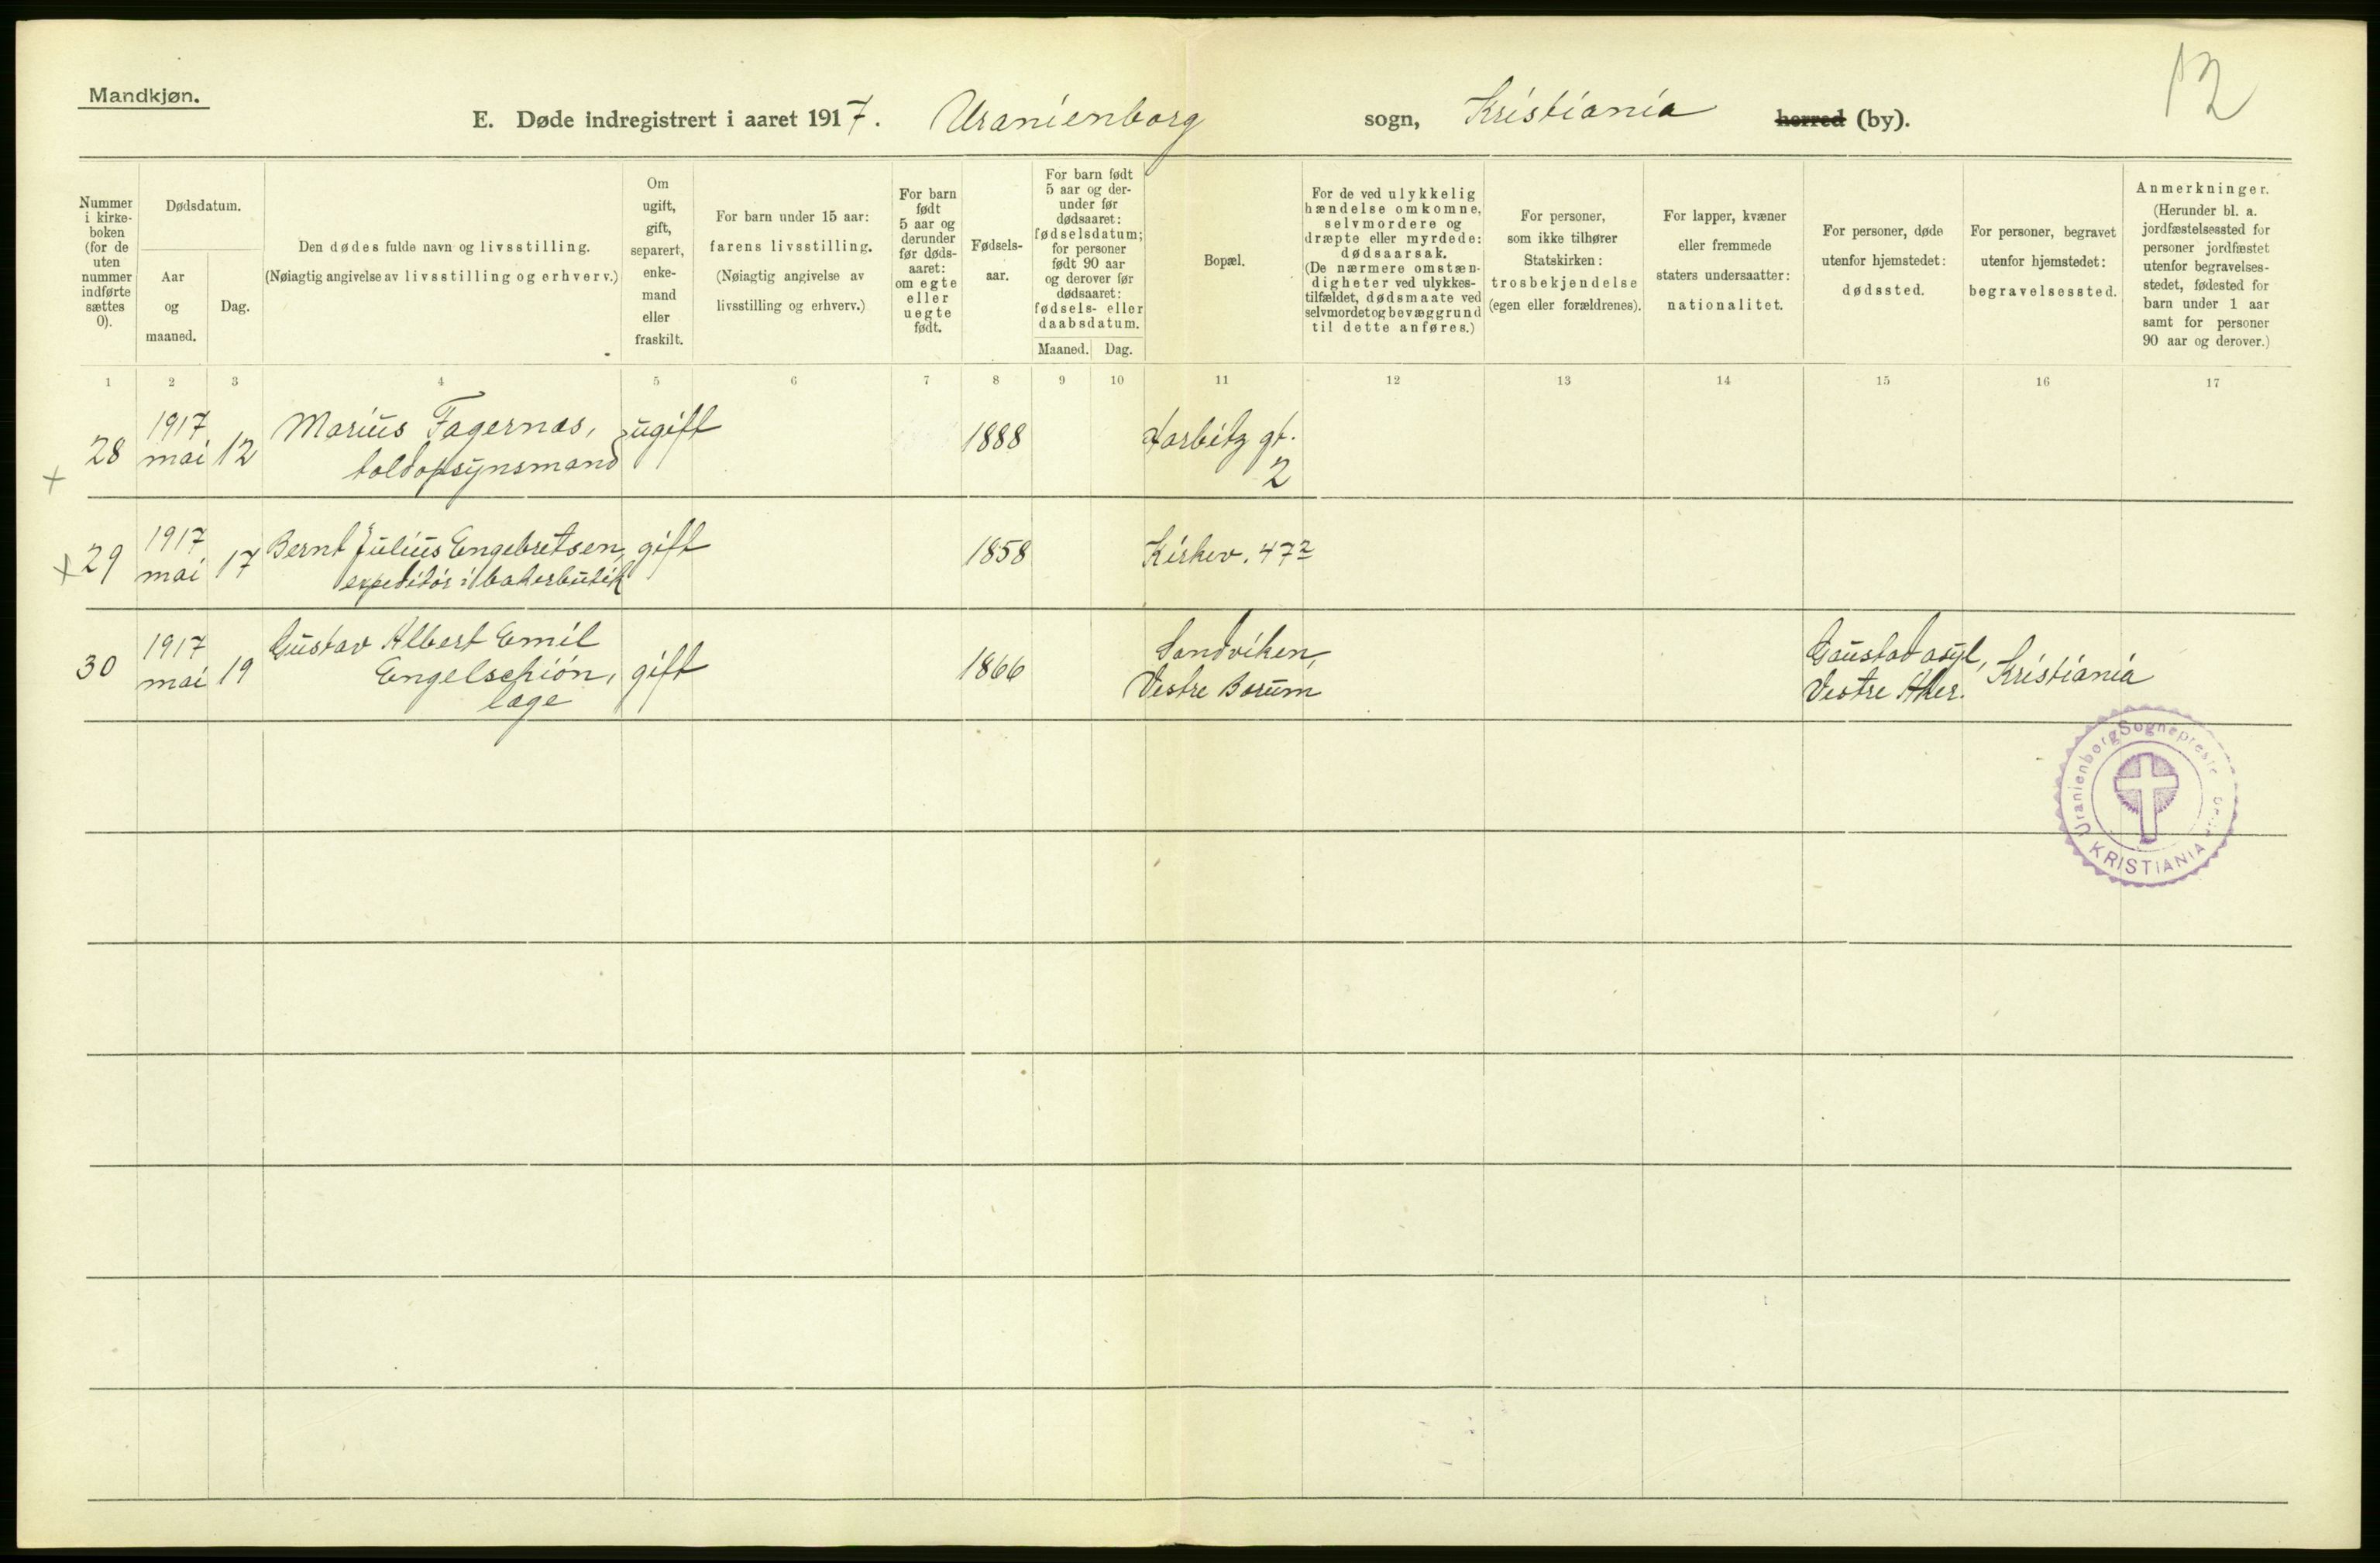 Mandkjøn.
12
E. Døde indregistrert i aaret 1917. Uranienborg sogn, Kristiania herred (by).
Nummer
i kirke-
boken
(for de
uten
nummer
indførte
sættes
0).
Dødsdatum.
Aar
og
maaned.
Dag.
Den dødes fulde navn og livsstilling.
(Nøiagtig angivelse av livsstilling og erhverv.)
Om
ugift,
gift,
separert,
enke-
mand
eller
fraskilt.
For barn under 15 aar:
farens livsstilling.
(Nøiagtig angivelse av
livsstilling og erhverv.)
For barn
født
5 aar og
derunder
før døds-
aaret:
om egte
eller
uegte
født.
Fødsels-
aar.
For barn født
5 aar og der-
under før
dødsaaret:
fødselsdatum;
for personer
født 90 aar
og derover før
dødsaaret:
fødsels- eller
daabsdatum.
Maaned. Dag.
Bopæl.
For de ved ulykkelig
hændelse omkomne,
selvmordere og
dræpte eller myrdede:
dødsaarsak.
(De nærmere omstæn-
digheter ved ulykkes-
tilfældet, dødsmaate ved
selvmordet og bevæggrund
til dette anføres.)
For personer,
som ikke tilhører
Statskirken:
trosbekjendelse
(egen eller forældrenes).
For lapper, kvæner
eller fremmede
staters undersaatter:
nationalitet.
For personer, døde
utenfor hjemstedet:
dødssted.
For personer, begravet
utenfor hjemstedet:
begravelsessted.
Anmerkninger.
(Herunder bl. a.
jordfæstelsessted for
personer jordfæstet
utenfor begravelses-
stedet, fødested for
barn under 1 aar
samt for personer
90 aar og derover.)
1 2 3 4 5 6 7 8 9 10 11 12 13 14 15 16 17
+ 28
1917
mai
12
Marius Fagernæs,
toldopsynsmand
ugift
1888
Harbitz gt.
2
+ 29
1917
mai
17
Bernt Julius Engebretsen,
expeditør i bakerbutik
gift
1858
Kirkev. 47²
30
1917
mai
19
Gustav Albert Emil
Engelschiøn,
læge
gift
1866
Sandviken,
Vestre Bærum
Gaustad asyl,
Vestre Aker.
Kristiania
Uranienborg Sogneprest
KRISTIANIA